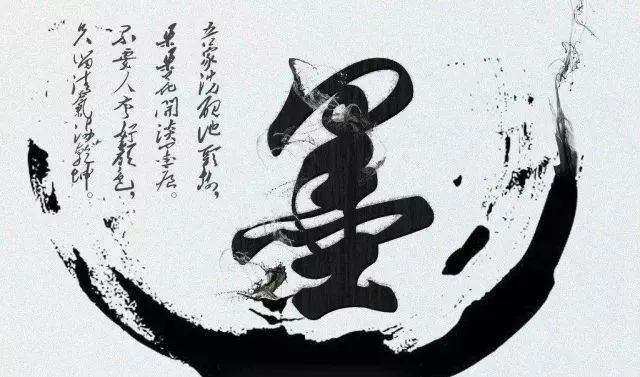 墨
吾家洗砚池头树，
朵朵花開淡墨痕。
不要人夸好颜色，
只留清氣满乾坤。